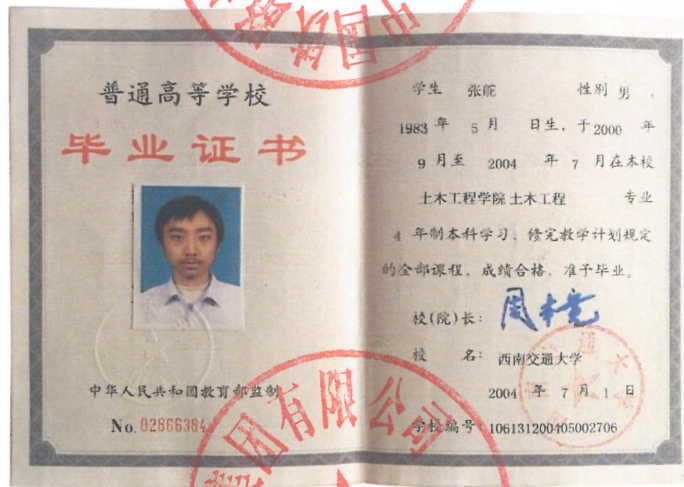 普通高等学校
毕业证书
中华人民共和国教育部监制
No. 02866384
学生 张能 性别 男
1983 年 5 月 日生, 于2000 年
9 月至 2004 年 7 月在本校
土木工程学院 土木工程 专业
4 年制本科学习、修完教学计划规定
的全部课程, 成绩合格, 准予毕业。
校(院)长:
校 名: 西南交通大学
2004 年 7 月 1 日
学校编号: 106131200405002706
中国
集团有限公司